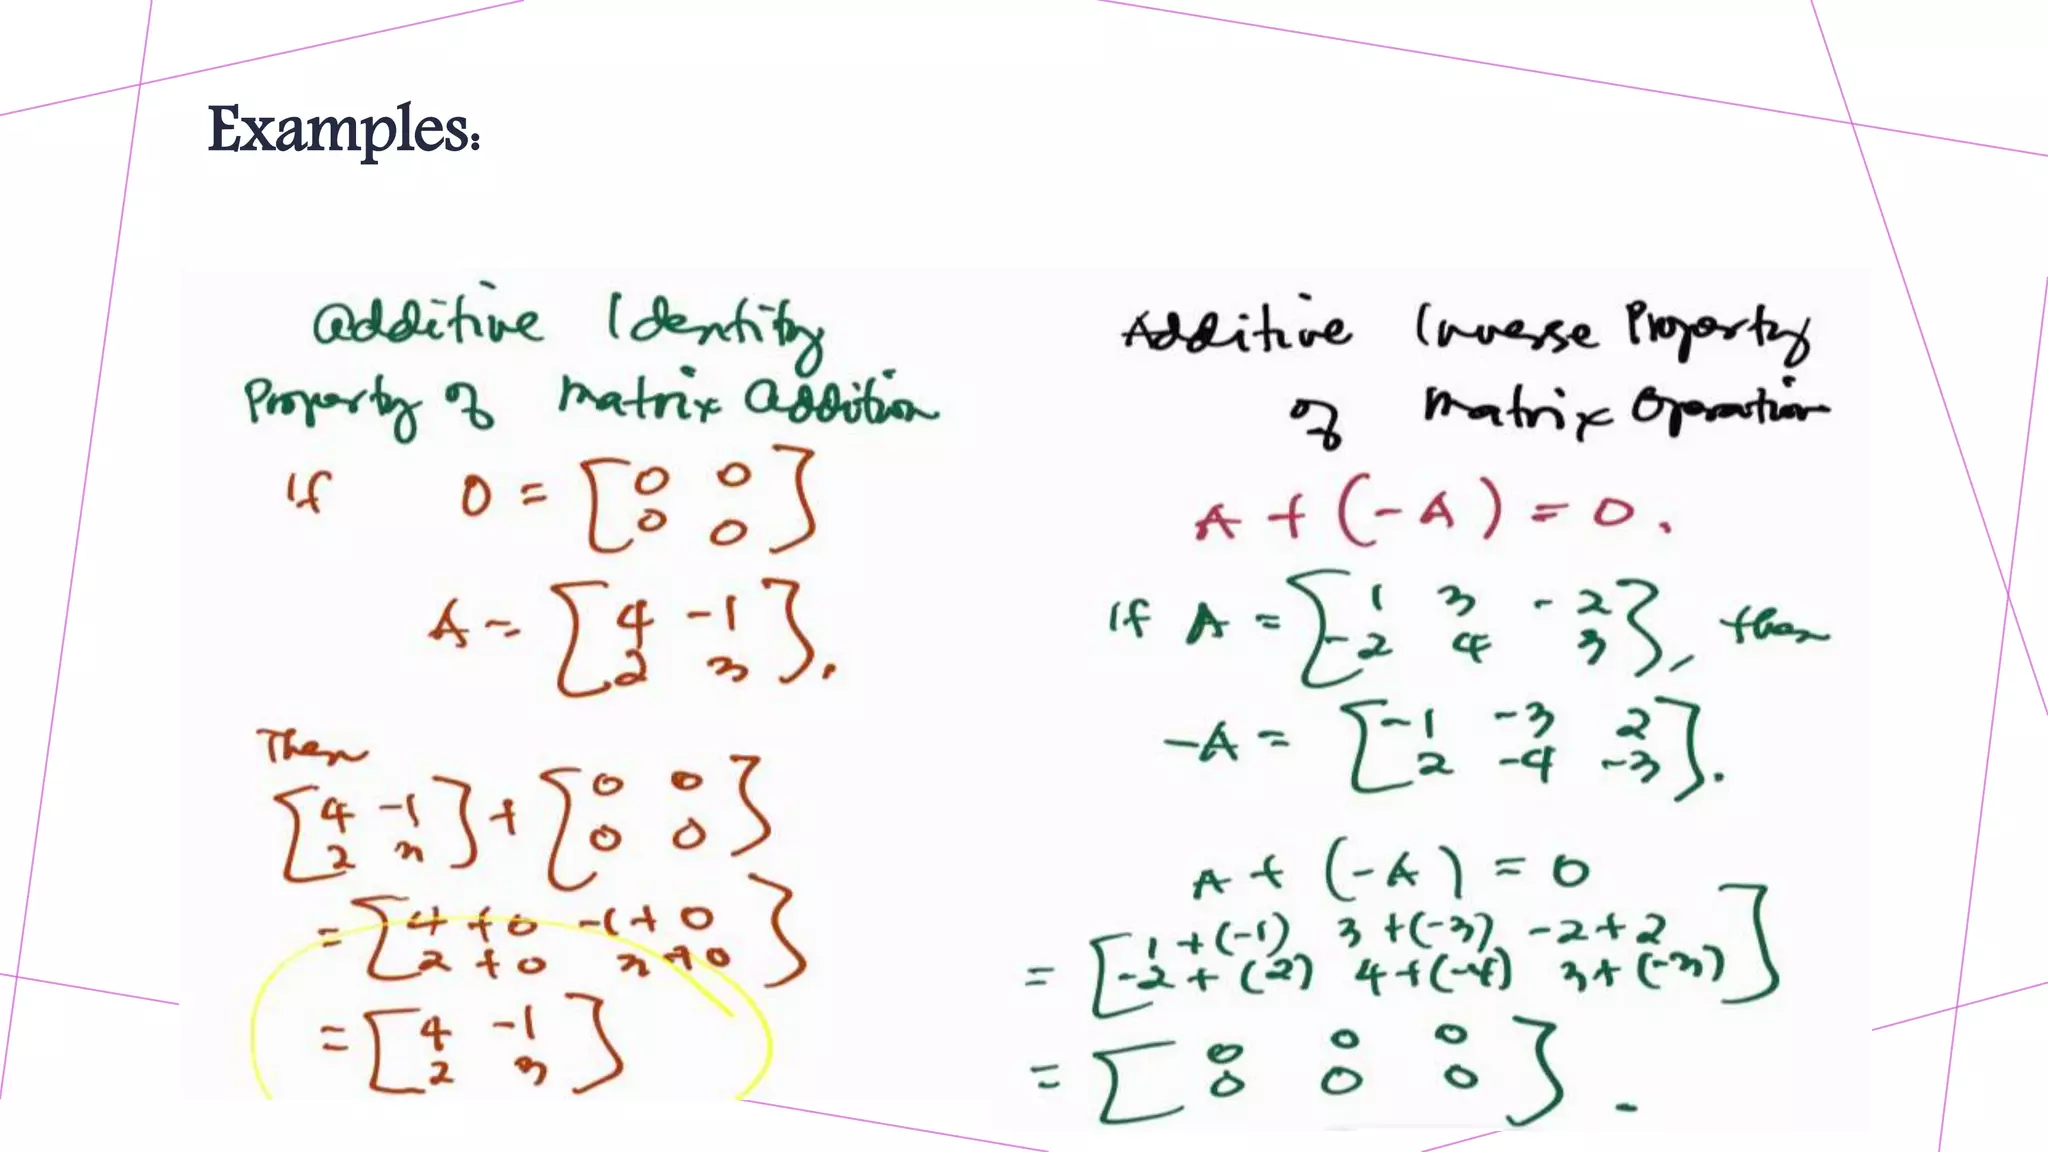 Examples:
Additive Identity
Property of Matrix Addition
If 0 = [0 0
0 0]
A = [4 -1
2 3].
Then
[4 -1
2 3] + [0 0
0 0]
= [4 + 0 -1 + 0
2 + 0 3 + 0]
= [4 -1
2 3]
Additive Inverse Property
of Matrix Operation
A + (-A) = 0.
If A = [1 3 -2
-2 4 3], then
-A = [-1 -3 2
2 -4 -3].
A + (-A) = 0
= [1 + (-1) 3 + (-3) -2 + 2
-2 + (2) 4 + (-4) 3 + (-3)]
= [0 0 0
0 0 0].